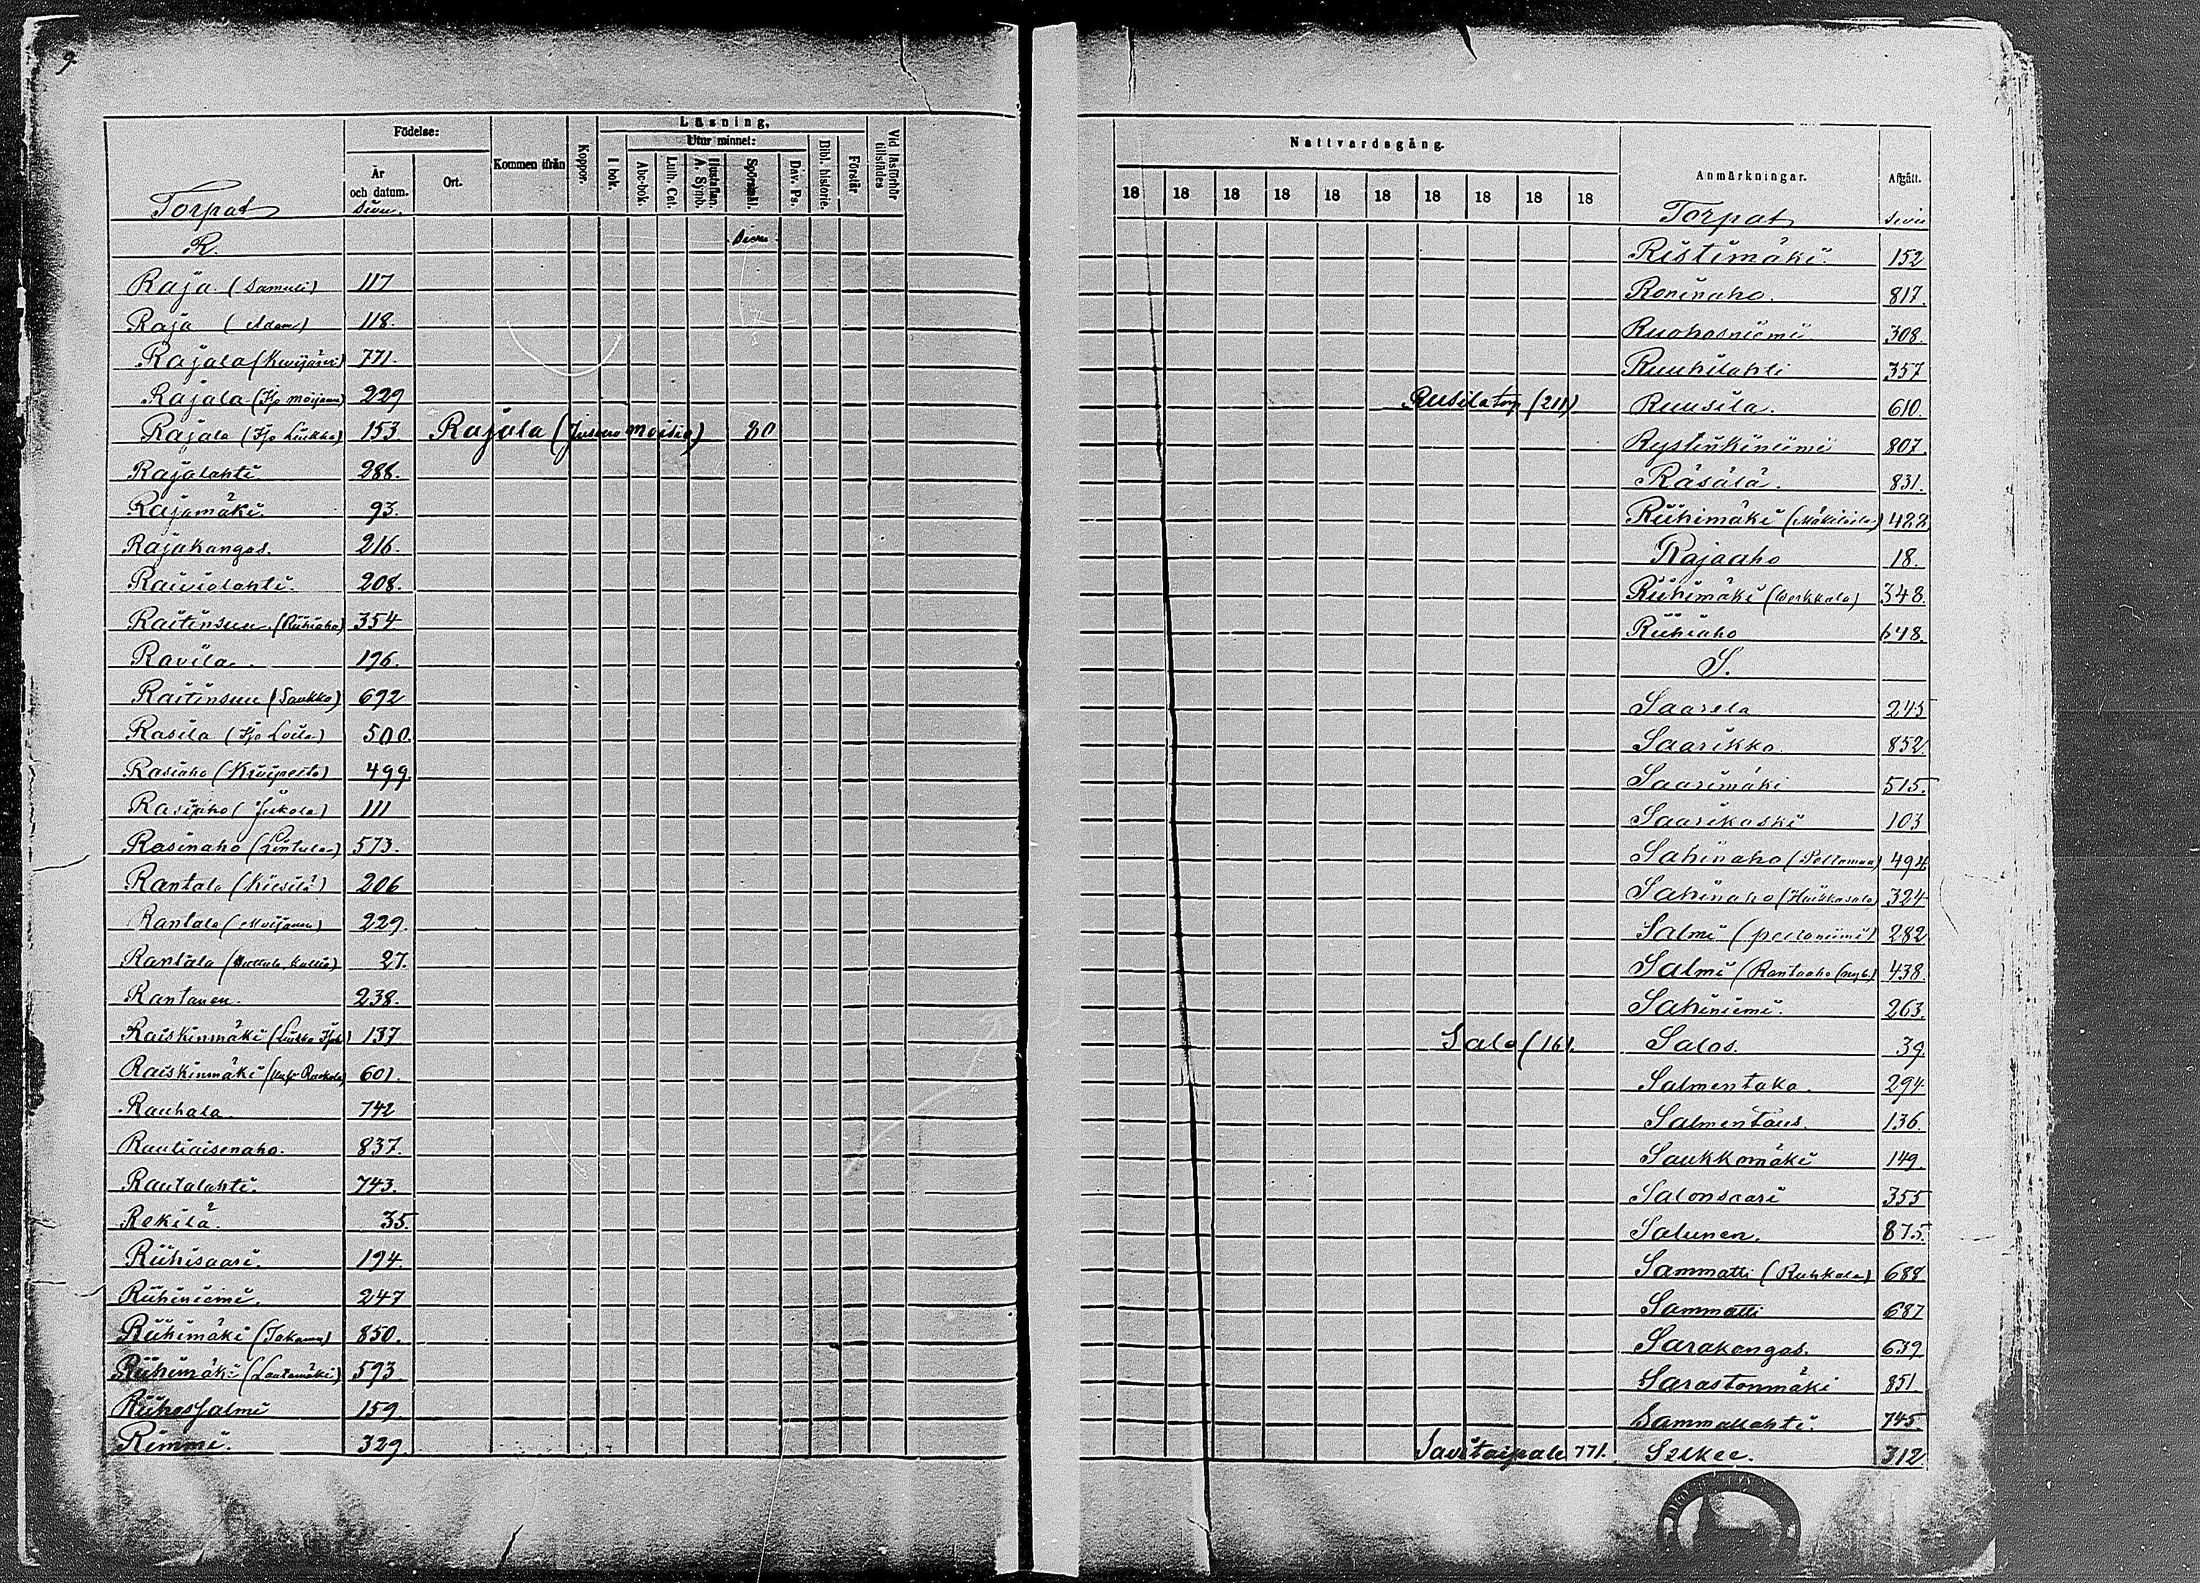 9.
Födelse:
År och datum.
Ort.
Kommen ifrån
Koppor.
Läsning.
I bok.
Utur minnet:
Abc-bok.
Luth. Cat.
Hustaflan, A. Symb.
Spörsmål.
Dav. Ps.
Bibl. historie
Förstår
Vid läsförhör tillstädes
Torpat Sivu.
R. Sivu
Raja (Samuli) 117
Raja (Adam) 118.
Rajala (Kivijärvi) 771.
Rajala (Iso Moijanen) 229
Rajala (Iso Liukko) 153 Rajala (Jussero Moisio) 80
Rajalahti 288.
Rajamäki. 93.
Rajakangas. 216.
Raiviolahti. 208.
Raitinsuu (Riihiaho) 354
Ravila. 196.
Raitinsuu (Saukko) 692
Rasila (Iso Loila) 500.
Rasiaho (Kivipelto) 499.
Rasiaho (Jukola) 111
Rasinaho (Lintula) 573.
Rantala (Kiesilä) 206
Rantala (Moijanen) 229.
Rantala 27.
Rantanen. 238.
Raiskinmäki (Liukko) 137
Raiskinmäki 601.
Rauhala. 742
Rautiaisenaho. 837.
Rautalahti. 743.
Rekilä. 35.
Riihisaari. 194.
Riihiniemi. 247
Riihimäki (Tokamu) 850.
Riihimäki (Lautamäki) 593
Riihossalmi 159.
Rimmi. 329.
Nattvardsgång.
18 18 18 18 18 18 18 18 18 18
Anmärkningar.
Afgått.
Torpat sivu
Ristimäki. 152
Roninaho. 817.
Ruohosniemi. 308.
Ruuhilahti 357
Rusila torp (211) Ruusila. 610.
Rystinkiniemi 807.
Räsälä. 831.
Riihimäki 422
Rajaaho 18.
Riihimäki (Werkkala) 348.
Riihiaho 648.
S.
Saarela 245
Saarikko. 852
Saarimäki 515.
Saarikoski 103
Sahinaho (Peltomaa) 494
Sahinaho (Haikkasalo) 324
Salmi (peltoniemi) 282
Salmi (Rantaaho 438.
Sahiniemi. 263.
Salo (161. Salos. 39.
Salmentaka. 294.
Salmentaus. 136.
Saukkomäki 149.
Salonsaari 355
Salunen. 875.
Sammatti (Ruhkala) 688
Sammatti 687
Sarakangas. 639
Sarastonmäki 851.
Sammallahti. 745.
Savitaipale 771. Selkee. 312